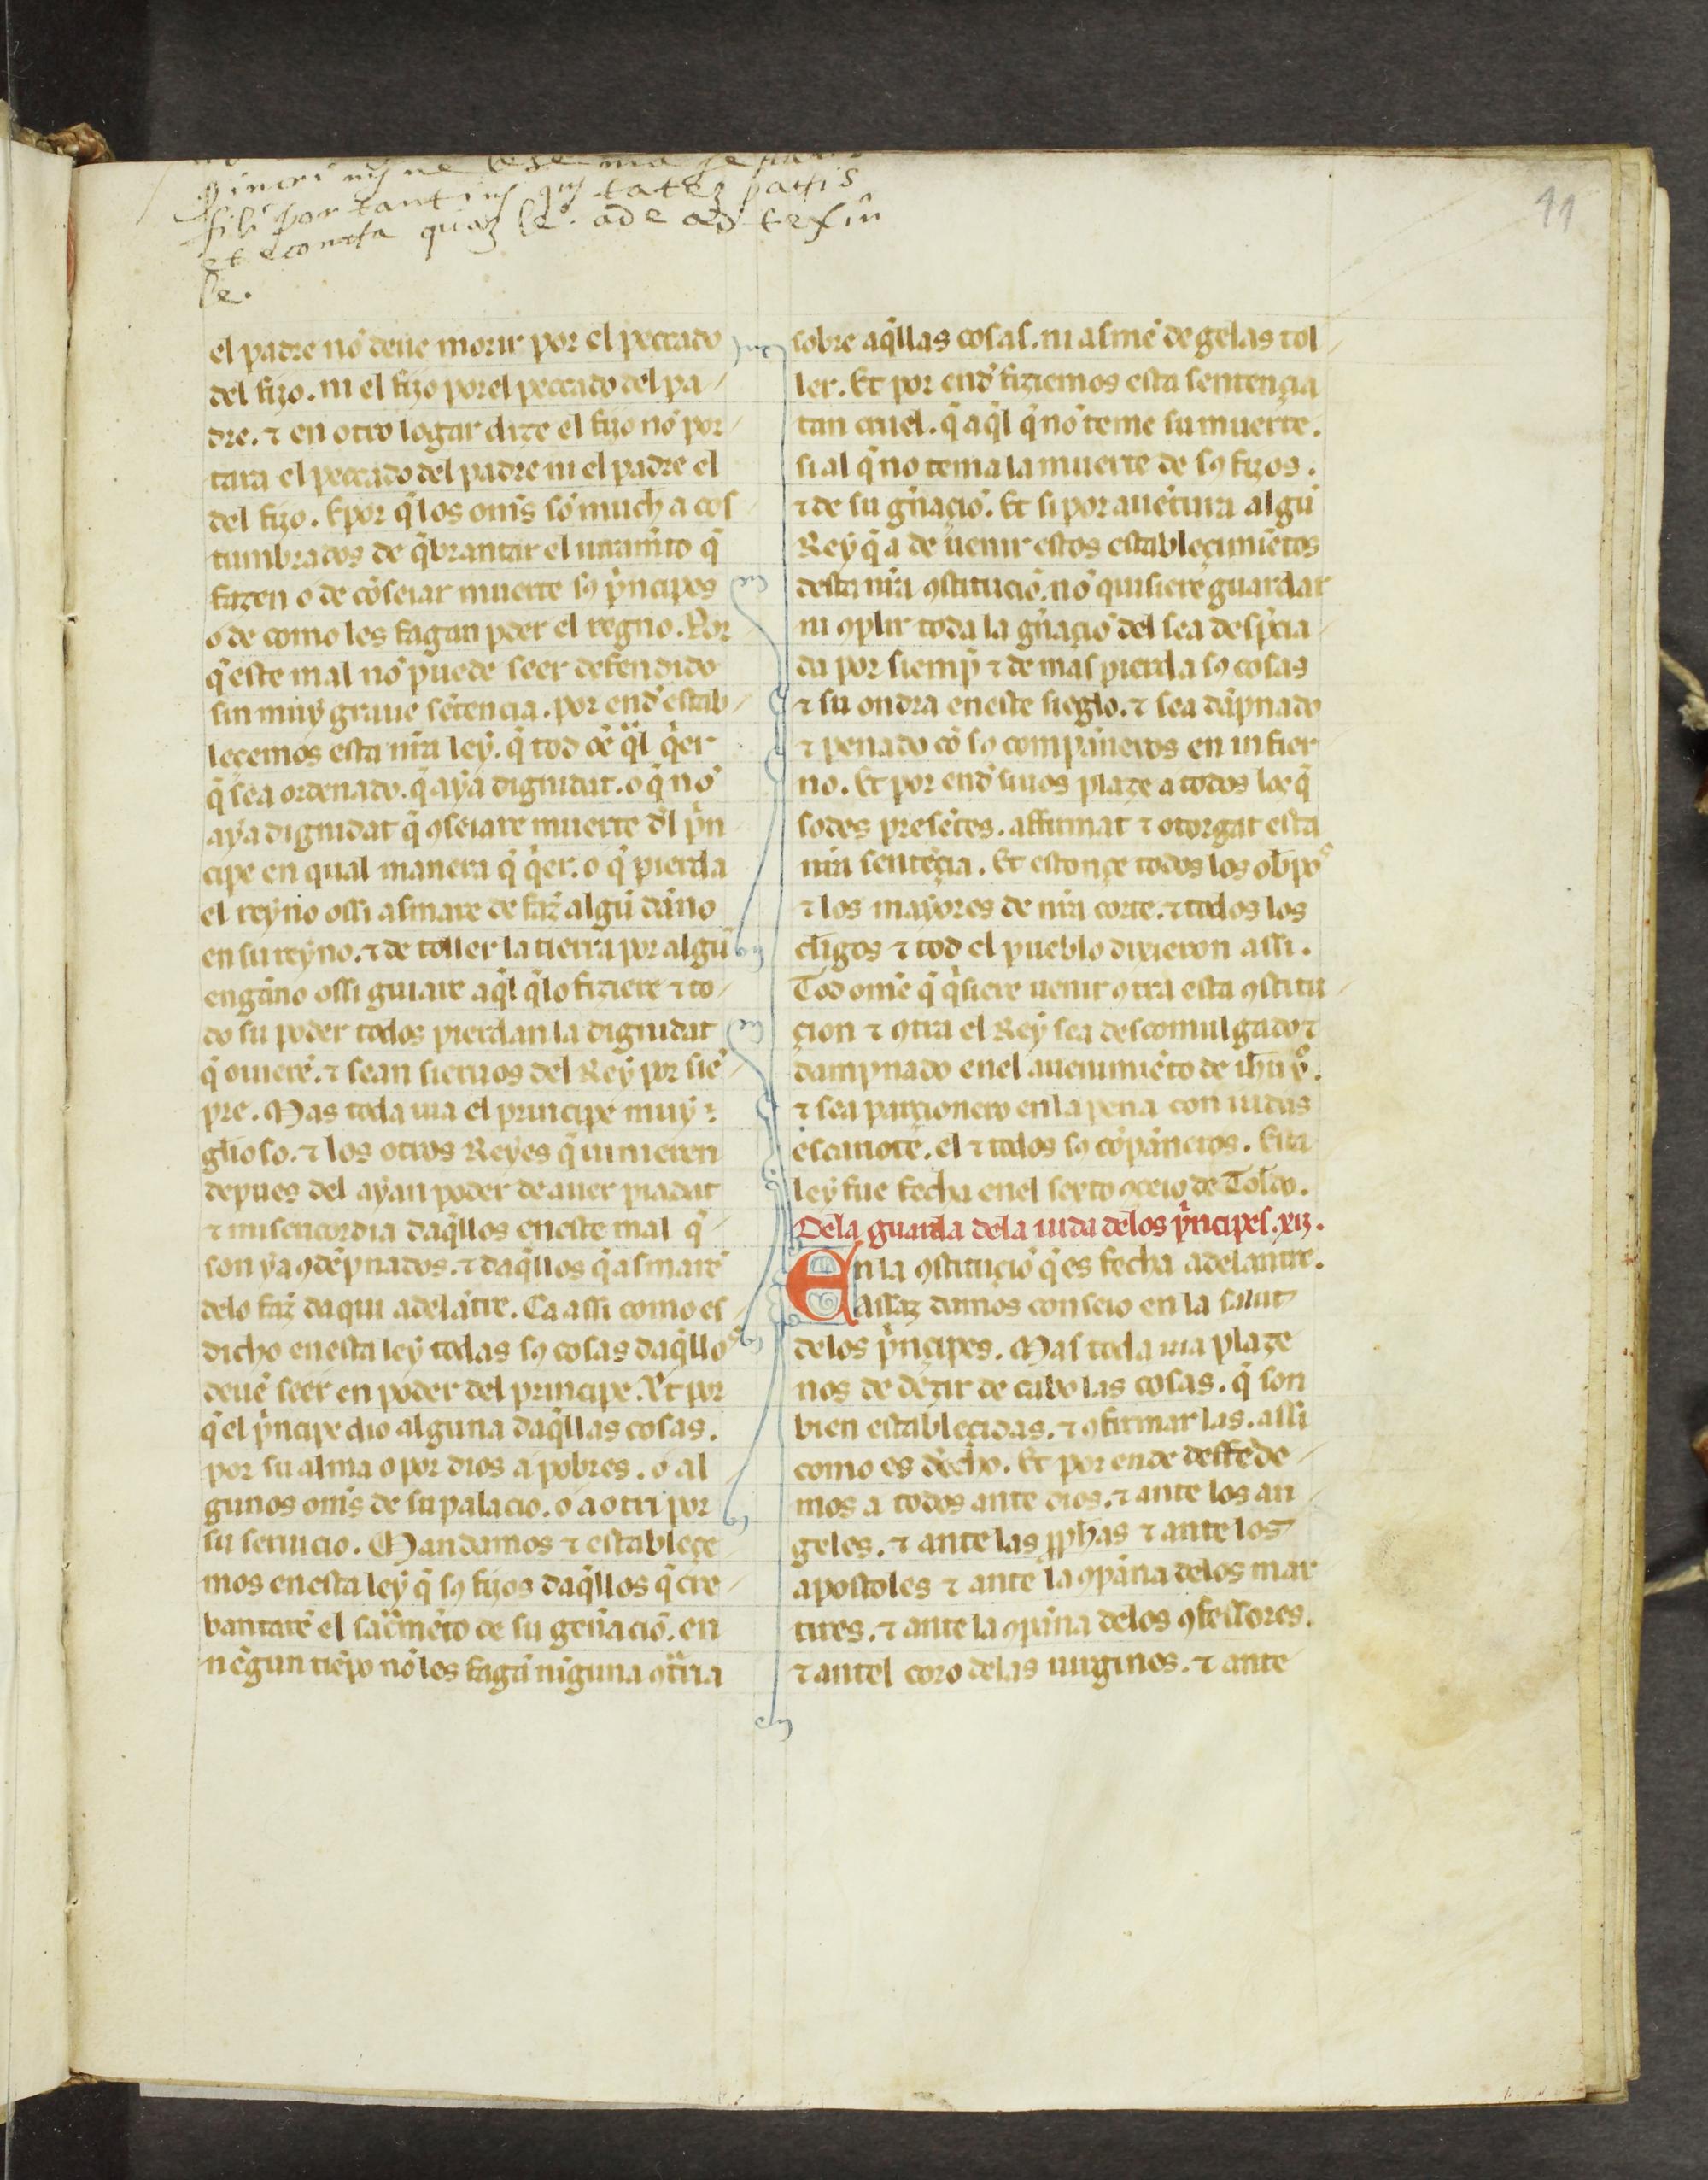 11
filius portant iniquitatez patris
et econtra quaz
el padre nõ deue morir por el peccado
del fijo. ni el fijo por el peccado del pa
dre. ⁊ en otro logar dize el fijo nõ por
tara el peccado del padre ni el padre el
del fijo. E por q̃ los om̃s sõ much a cos
tumbrados de q̃brantar el iuram̃to q̃
fazen o de cõseiar muerte sꝯ pͥncipes
o de como les fagan ꝑder el regno. Por
q̃ este mal nõ puede seer defendido
sin muy graue sẽtencia. por end̾ estab
leçemos esta nr̃a ley. q̃ tod õe q̃l q̃er
q̃ sea ordenado. q̃ aya dignidat. o q̃ nõ
aya dignidat q̃ ꝯseiare muerte d̾l pͥn
cipe en qual manera q̃ q̃er. o q̃ pierda
el reyno ossi asmare de faz̃ algũ dãno
en su reyno. ⁊ de toller la tierra por algũ
engãno ossi guiare aq̃l q̃ lo fiziere ⁊ to
do su poder todos pierdan la dignidat
q̃ ouierẽ. ⁊ sean sieruos del Rey por siẽ
pre. Mas toda uia el principe muy
glioso. ⁊ los otros Reyes q̃ uinieren
depues del ayan poder de auer piadat
⁊ misericordia daq̃llos en este mal q̃
son ya ꝯdẽpnados. ⁊ daq̃llos q̃ asmarẽ
delo faz̃ daqui adelãtre. Ca assi como es
dicho en esta ley todas sꝯ cosas daq̃llos
deuẽ seer en poder del principe. Et por
q̃ el pͥncipe dio alguna daq̃llas cosas.
por su alma o por dios a pobres. o al
gunos om̃s de su palacio. o a otri por
su seruicio. Mandamos ⁊ estableçe
mos en esta ley q̃ sꝯ fijos daq̃llos q̃ cre
bantarẽ el sac̃mẽto de su gen̾aciõ. en
nẽgun tiẽpo nõ les fagã nĩguna ꝯtͣria
sobre aq̃llas cosas. ni asmẽ de gelas tol
ler. Et por end̾ fiziemos esta sentençia
tan cruel. q̃ aq̃l q̃ nõ teme su muerte.
si al q̃ no tema la muerte de sꝯ fijos.
⁊ de su gñaçiõ. Et si por auẽtura algũ
Rey q̃ a de uenir estos estableçimiẽtos
desta nr̃a ꝯstituciõ. nõ quisiere guardar
ni ꝯplir toda la gñaçiõ del sea desp̃cia
da por siemp̃ ⁊ de mas pierda sꝯ cosas
⁊ su ondra en este sieglo. ⁊ sea dãpnado
⁊ penado cõ sꝯ compãneros en infier
no. Et por end̾ si uos plaze a todos los q̃
sodes presẽtes. affirmat ⁊ otorgat esta
nr̃a sentẽçia. Et estonçe todos los obp̃os
⁊ los mayores de nr̃a corte. ⁊ todos los
cl̃igos ⁊ tod el pueblo dixieron assi.
Tod omẽ q̃ q̃siere uenir ꝯtra esta ꝯstitu
çion ⁊ ꝯtra el Rey sea descomulgado ⁊
dampnado en el auenimiẽto de ih̃u x̃o.
⁊ sea parçionero en la pena con iudas
escariote. el ⁊ todos sꝯ cõpãneros. Esta
ley fue fecha en el sexto ꝯceio de Toledo.
Dela guarda dela uida delos pͥncipes. xij.
En la ꝯstituçiõ q̃ es fecha adelantre.
assaz damos conseio en la salut
delos pͥnçipes. Mas toda uia plaze
nos de dezir de cabo las cosas. q̃ son
bien estableçidas. ⁊ ꝯfirmar las. assi
como es d̾echo. Et por ende deffẽde
mos a todos ante dios. ⁊ ante los an
geles. ⁊ ante las ꝓph̃as ⁊ ante los
apostoles ⁊ ante la ꝯpãna delos mar
tires. ⁊ ante la ꝯpãna delos ꝯfessores.
⁊ antel coro delas uirgines. ⁊ ante